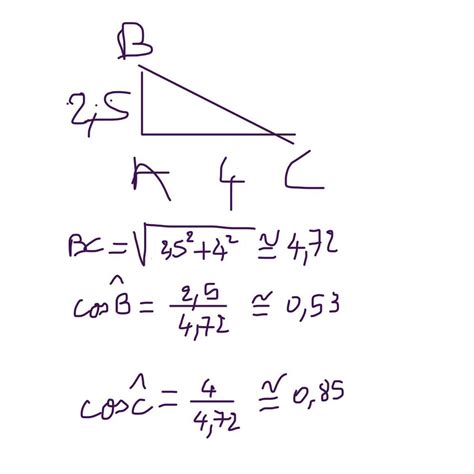 B
2,5
A 4 C
BC = √2,5² + 4² ≅ 4,72
cos B̂ = 2,5 / 4,72 ≅ 0,53
cos Ĉ = 4 / 4,72 ≅ 0,85